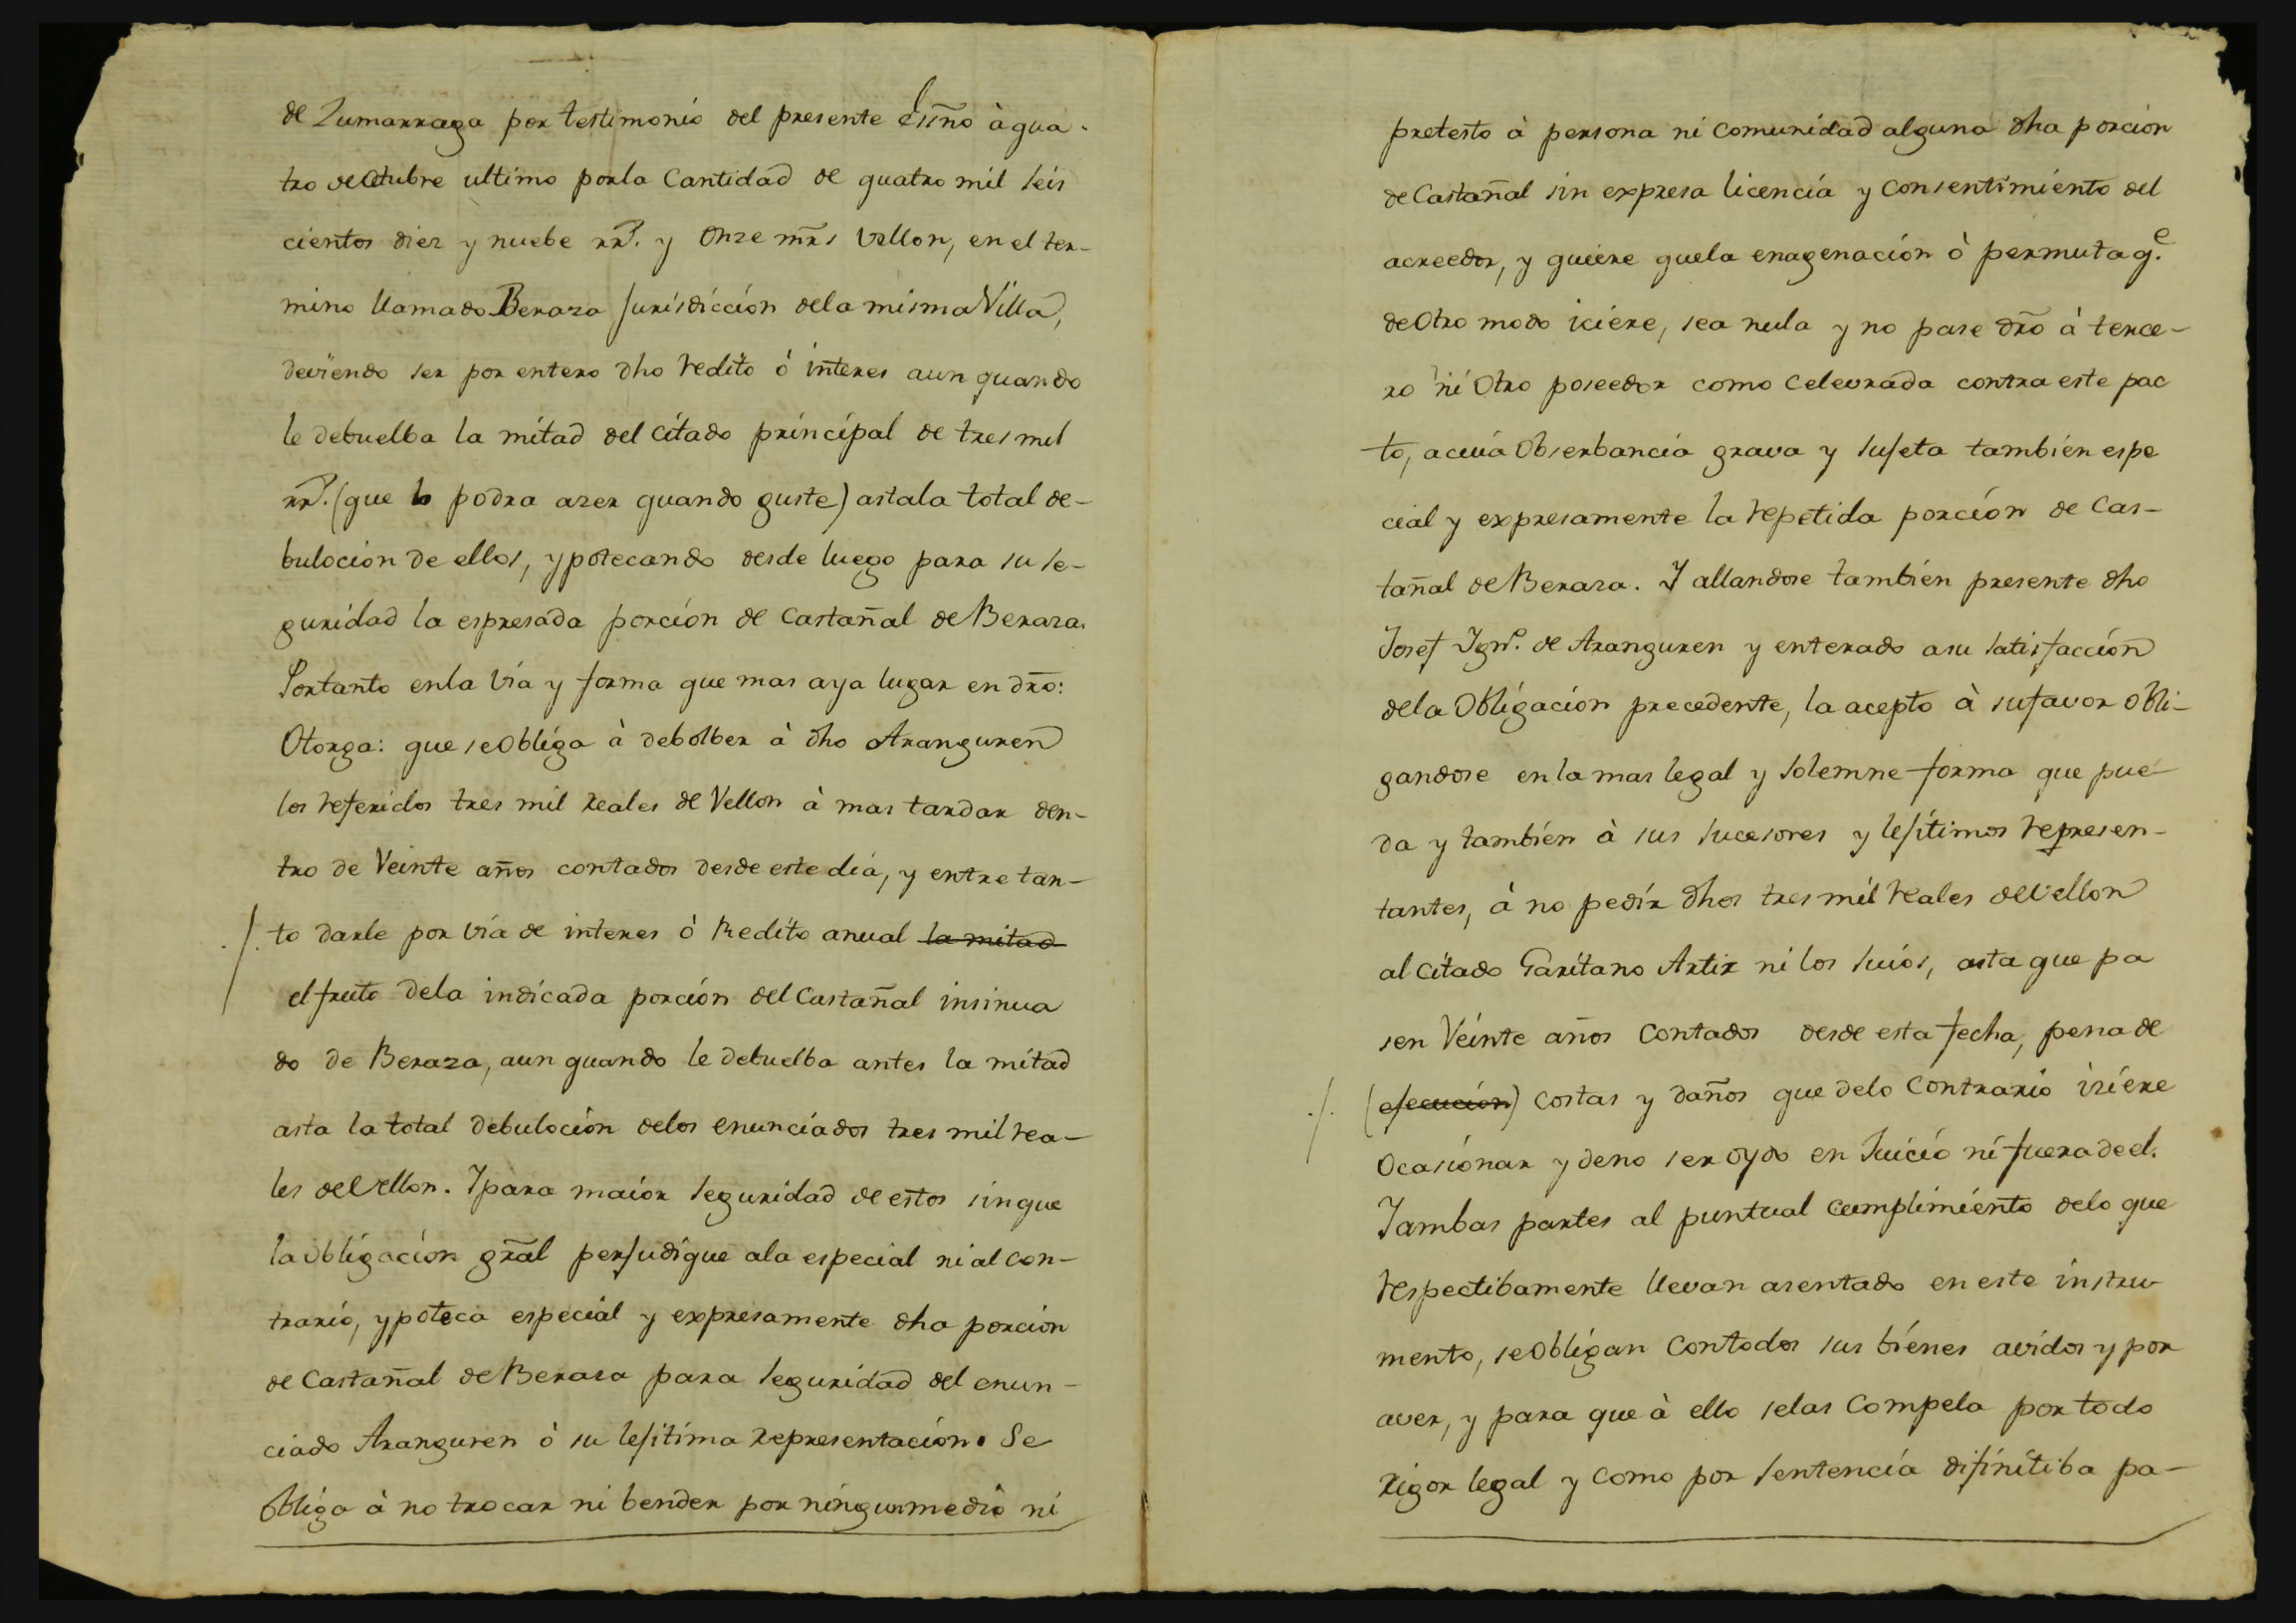 de Zumarraga por testimonio del presente Essño à qua-
tro de Otubre ultimo porla Cantidad de quatro mil seis
cientos diez y nuebe rr.^s y Onze mr̃s Vellon, en el ter-
mino llamado Beraza Jurisdicción dela misma Villa,
deviendo ser por entero dho redito ó interes aun quando
le debuelba la mitad del citado principal de tres mil
rr.^s (que lo podra azer quando guste) asta la total de-
buloción de ellos, ypotecando desde luego para su se-
guridad la espresada porción de Castañal de Beraza.
Portanto enla Vía y forma que mas aya lugar en dr̃o:
Otorga: que se Obliga à debolber à dho Aranguren
los referidos tres mil reales de Vellon à mas tardar den-
tro de Veinte años contados desde este día, y entre tan-
./. to darle por Vía de interes ò Redito anual la mitad
el fruto dela indicada porción del Castañal insinua
do de Beraza, aun quando le debuelba antes la mitad
asta la total debuloción delos enunciados tres mil rea-
les de Vellon. Y para maior seguridad de estos sin que
la Obligación gr̃al perjudique ala especial ni al con-
trario, ypoteca especial y expresamente dha porción
de Castañal de Beraza para seguridad del enun-
ciado Aranguren ò su lejitima Representación. Se
Obliga à no trocar ni bender por ningun medio ni
pretesto à persona ni Comunidad alguna dha porción
de Castañal sin expresa licencia y Consentimiento del
acreedor, y quiere quela enagenación ò permuta q.^e
de Otro modo iciere, sea nula y no pase dr̃o à terce-
ro ni Otro poseedor como Celevrada contra este pac
to, acuia Obserbancia grava y sujeta también espe
cial y expresamente la repetida porción de Cas-
tañal de Beraza. Y allandose también presente dho
Josef Ygn.^o de Aranguren y enterado asu satisfacción
dela Obligación precedente, la acepto à su favor obli-
gandose en la mas legal y solemne forma que pue-
da y también à sus sucesores y lejitimos represen-
tantes, à no pedir dhos tres mil reales de Vellon
al Citado Garitano Artiz ni los suios, asta que pa
sen Veinte años Contados desde esta fecha, pena de
./. (ejecución) costas y daños que delo Contrario iziere
Ocasionar y deno ser oydo en Juicio ni fuera de el.
Y ambas partes al puntual cumplimiento delo que
respectibamente llevan asentado en este instru-
mento, se Obligan Con todos sus bienes avidos y por
aver, y para que à ello selas Compela por todo
rigor legal y como por sentencia difinitiba pa-